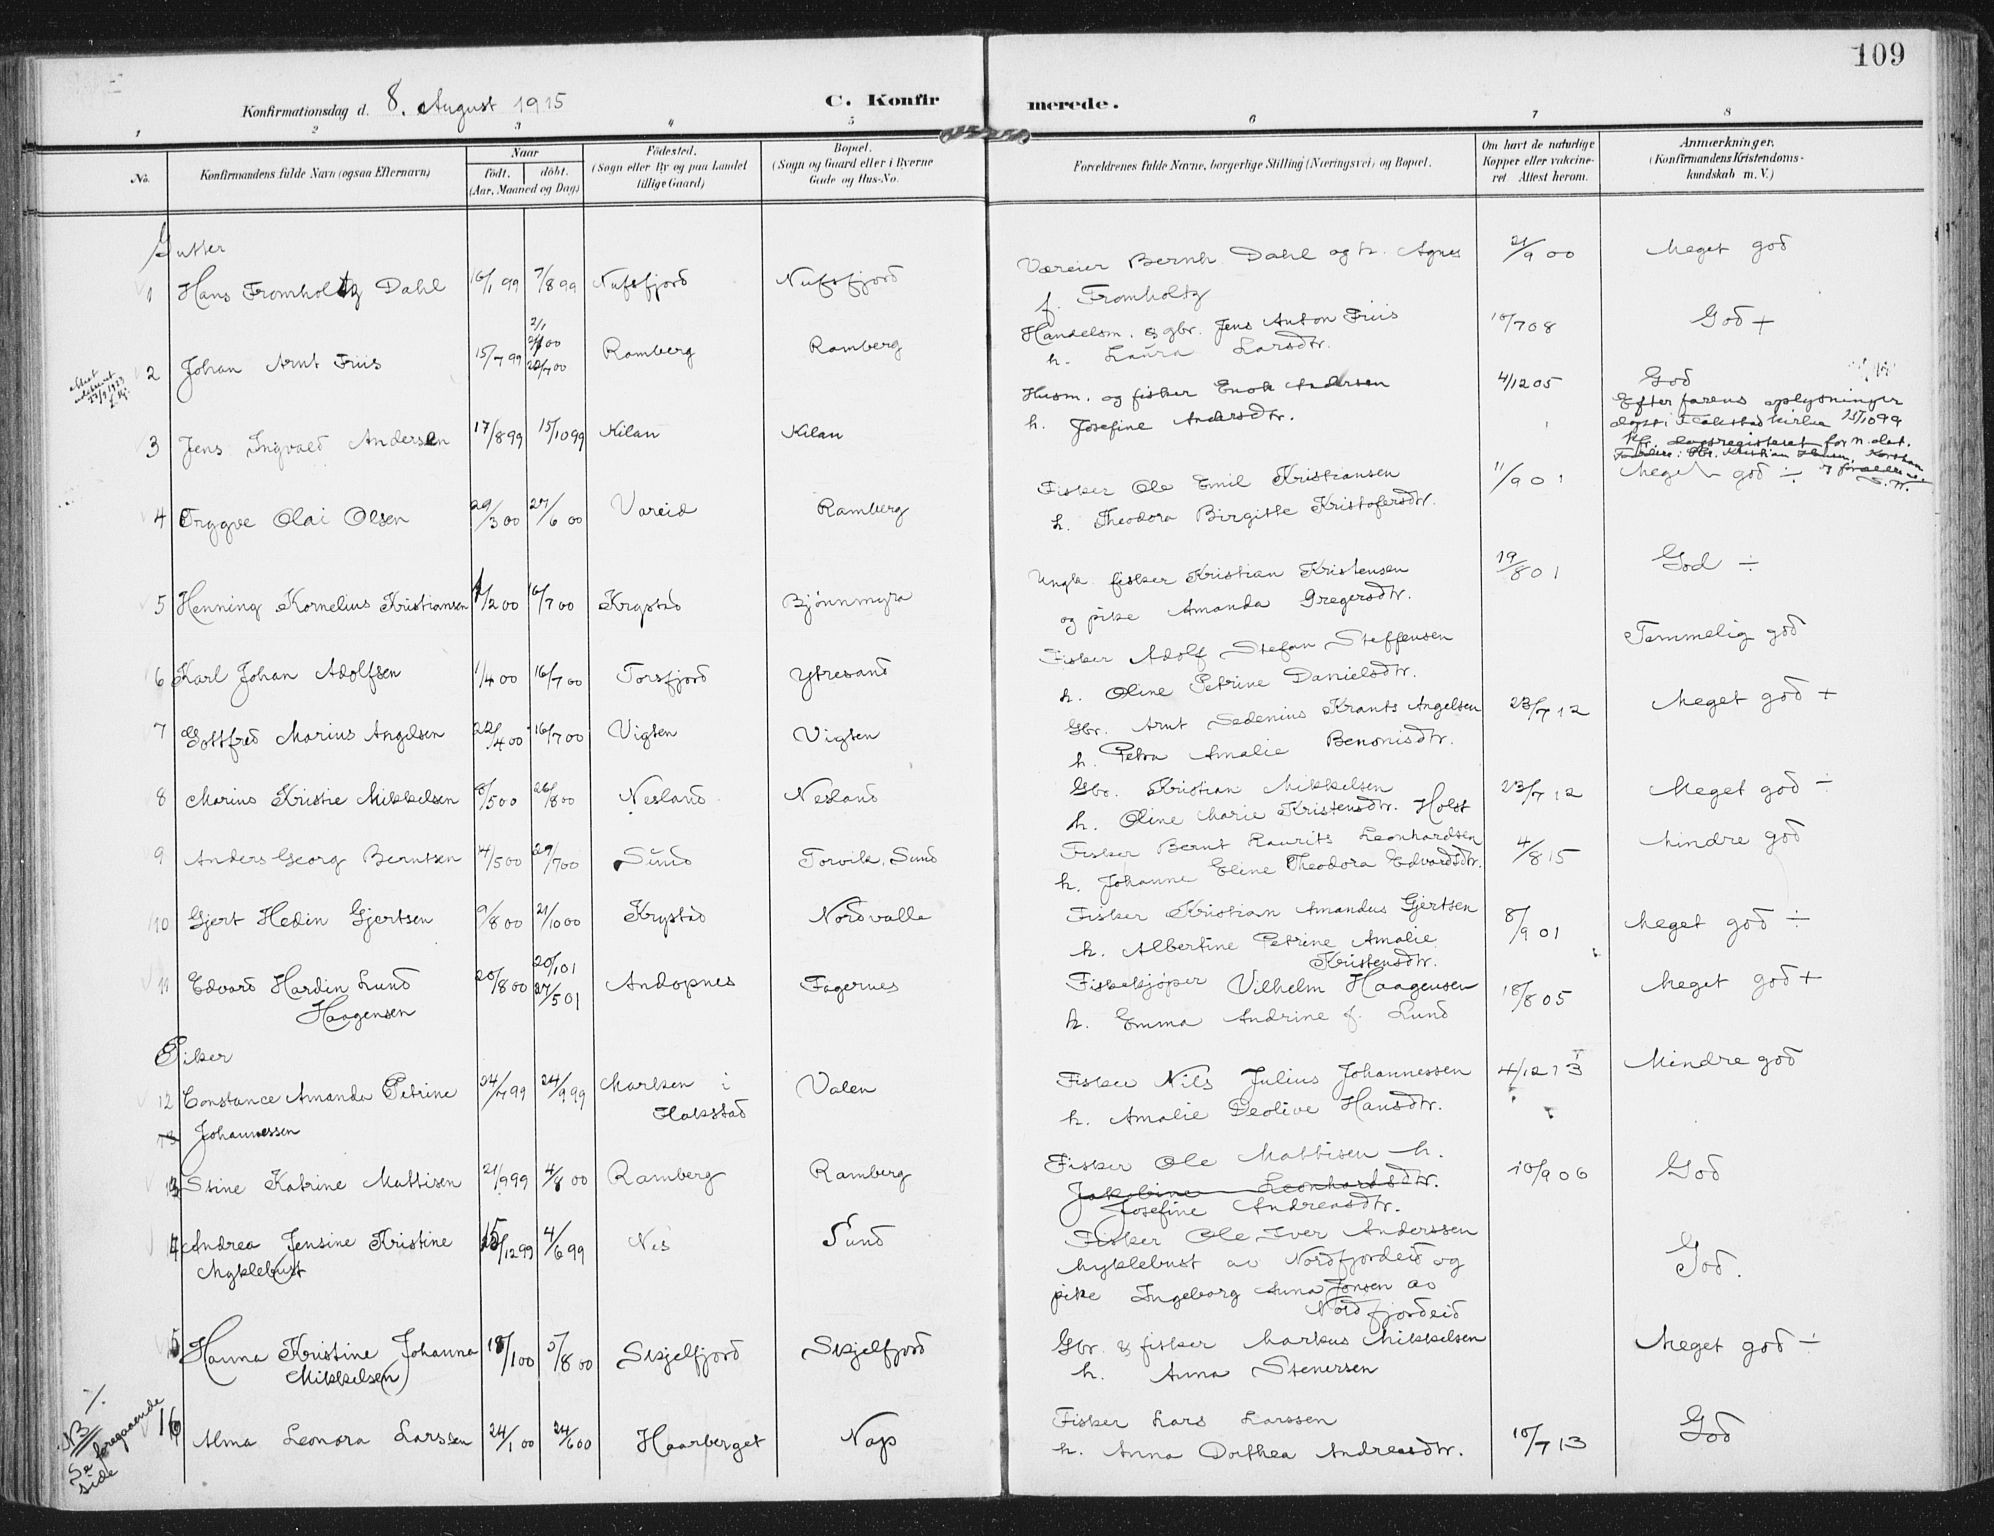 109
Konfirmationsdag d. 8. August 1915
C. Konfirmerede.
1 2 3 4 5 6 7 8
No. Konfirmandens fulde Navn (ogsaa Efternavn) Naar født. døbt. (Aar, Maaned og Dag) Fødested. (Sogn eller By og paa Landet tillige Gaard) Bopæl. (Sogn og Gaard eller i Byerne Gade og Hus-No. Forældrenes fulde Navne, borgerlige Stilling (Næringsvei) og Bopæl. Om havt de naturlige Kopper eller vaksineret. Attest herom. Anmærkninger. (Konfirmandens Kristendomskundskab m. V.)
Gutter
1 Hans Fromholtz Dahl 16/1 99 7/8 99 Nufsfjord Nufsfjord Væreier Bernh. Dahl og h. Agnes 21/9 00 Meget god
f. Fromholtz
2 Johan Arnt Friis 15/7 99 22/7 00 Ramberg Ramberg Handelsm. & gbr. Jens Anton Friis 10/7 08 God +
h. Laura Larsdtr.
3 Jens Ingvald Andersen 17/8 99 15/10 99 Kilan Kilan Husm. og fisker Enok Andersen 4/12 05 God
h. Josefine Andersdtr. Efter farens oplysninger
døpt i Flakstad kirke 15/10 99
4 Trygve Olai Olsen 29/3 00 27/6 00 Vareid Ramberg Fisker Ole Emil Kristiansen 11/9 01 Meget god ÷
h. Theodora Birgitte Kristofersdtr.
5 Henning Kornelius Kristiansen 1/2 00 16/7 00 Krystad Bjönnmyra Ungk. fisker Kristian Kristensen 19/8 01 God ÷
og pike Amanda Gregersdtr.
6 Karl Johan Adolfsen 1/4 00 16/7 00 Torsfjord Ytresand Fisker Adolf Stefan Steffensen Temmelig god
h. Oline Petrine Danielsdtr.
7 Gottfred Marius Angelsen 22/4 00 16/7 00 Vigten Vigten Gbr. Arnt Sedenius Krants Angelsen 23/7 12 Meget god +
h. Petra Amalie Benonisdtr.
8 Marius Kristie Mikkelsen 8/5 00 26/8 00 Nesland Nesland Gbr. Kristian Mikkelsen 23/7 12 Meget god ÷
h. Oline Marie Kristensdtr. Holst
9 Anders Georg Berntsen 14/5 00 29/7 00 Sund Torvik, Sund Fisker Bernt Laurits Leonhardsen 4/8 15 Mindre god
h. Johanne Eline Theodora Edvardsdtr.
10 Gjert Hedin Gjertsen 9/8 00 21/10 00 Krystad Nordvalle Fisker Kristian Amandus Gjertsen 8/9 01 Meget god ÷
h. Albertine Petrine Amalie
Kristensdtr.
11 Edvard Hardin Lund 20/8 00 20/1 01 Andopnes Fagernes Fiskekjøper Vilhelm Haagensen 18/8 05 Meget god +
Haagensen 27/5 01 h. Emma Andrine f. Lund
Piker
12 Constance Amanda Petrine 24/7 99 24/9 99 Marken i Valen Fisker Nils Julius Johannessen 4/12 13 Mindre god
Johannessen Flakstad h. Amalie Deolive Hansdtr.
13 Stine Katrine Mattisen 21/9 99 4/8 00 Ramberg Ramberg Fisker Ole Mattisen h. 10/9 06 God
Jakobine Leonhardsdtr.
Josefine Andreasdtr.
14 Andrea Jensine Kristine 15/12 99 4/6 99 Nes Sund Fisker Ole Iver Anderssen God.
Myklebust Myklebust av Nordfjordeid og
pike Ingeborg Anna Jonsen av
Nordfjordeid
15 Hanna Kristine Johanna 18/1 00 5/8 00 Skjelfjord Skjelfjord Gbr. & fisker Markus Mikkelsen Meget god ÷
Mikkelsen h. Anna Stenersen
16 Alma Leonora Larssen 24/1 00 24/6 00 Haarberget Nap Fisker Lars Larssen 10/7 13 God
h. Anna Dorthea Andreasdtr.
NB
Se foregaaende
side